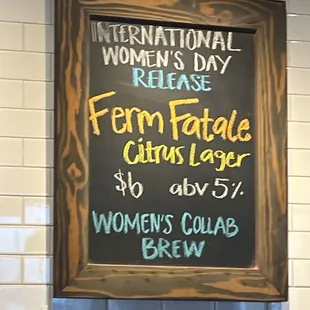 INTERNATIONAL
WOMEN'S DAY
RELEASE
Ferm Fatale
Citrus Lager
$6 abv 5%
WOMEN'S COLLAB
BREW